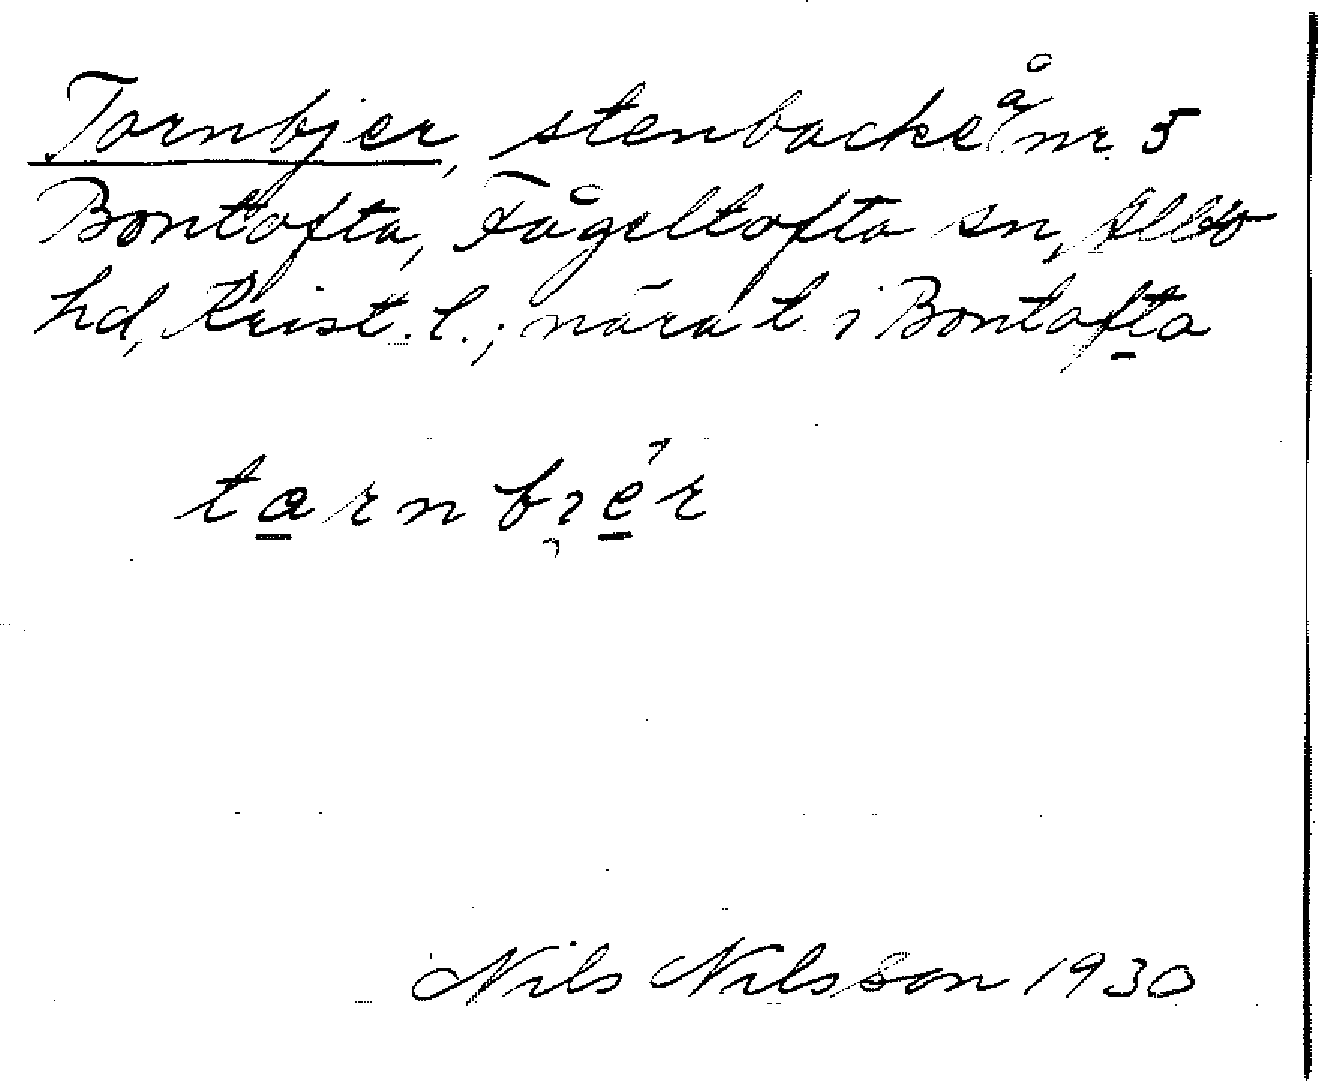 Tornbjer, stenbacke å nr. 5
Bontofta, Fågeltofta sn, Albo
hd, Krist. l.; nära t. i Bontofta
tarnbier
Nils Nilsson 1930